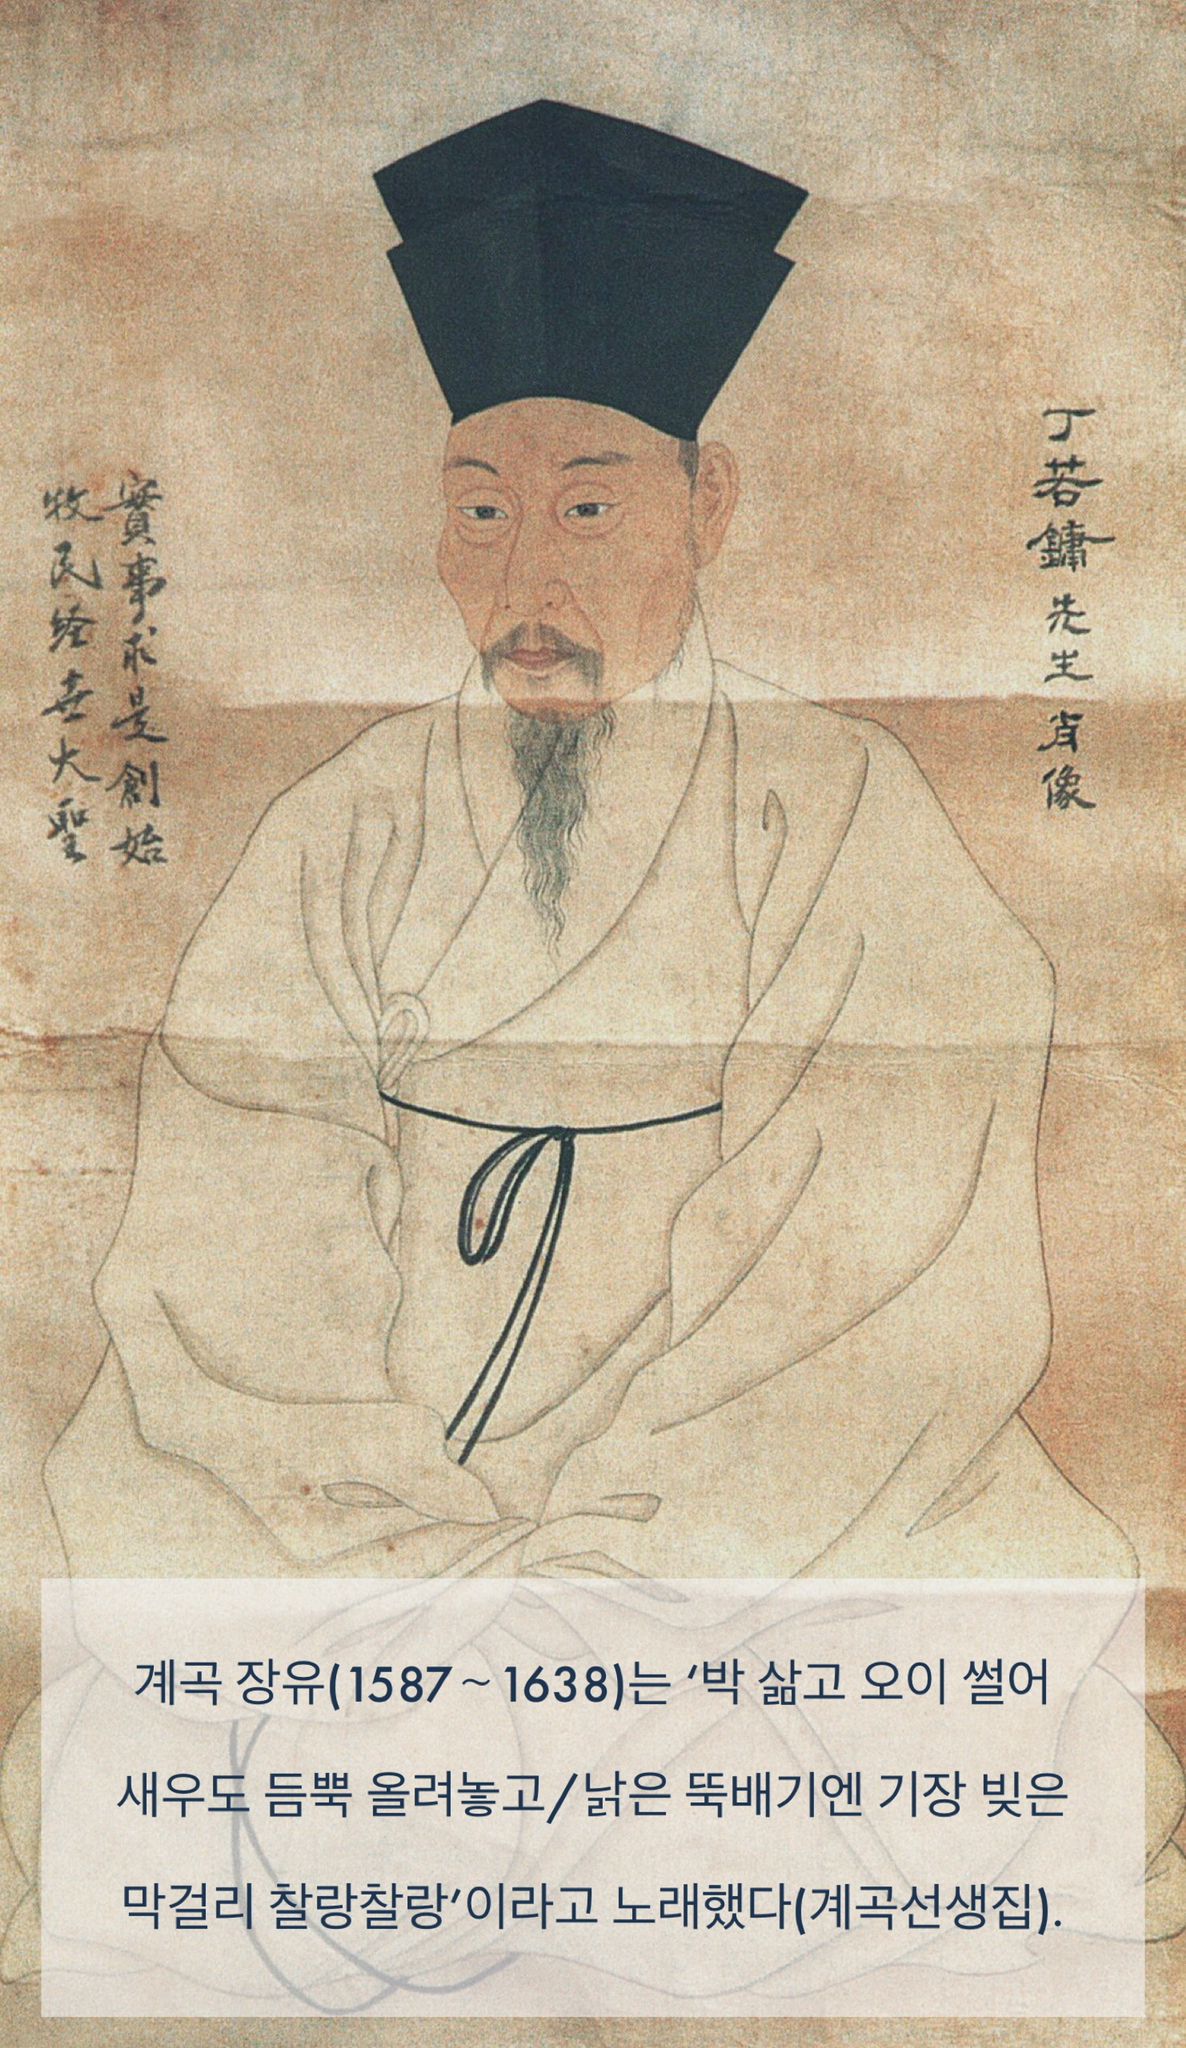 丁若鏞先生肖像
實事求是創始
牧民経世大聖
계곡 장유(1587~1638)는 ‘박 삶고 오이 썰어
새우도 듬뿍 올려놓고/낡은 뚝배기엔 기장 빚은
막걸리 찰랑찰랑’이라고 노래했다(계곡선생집).